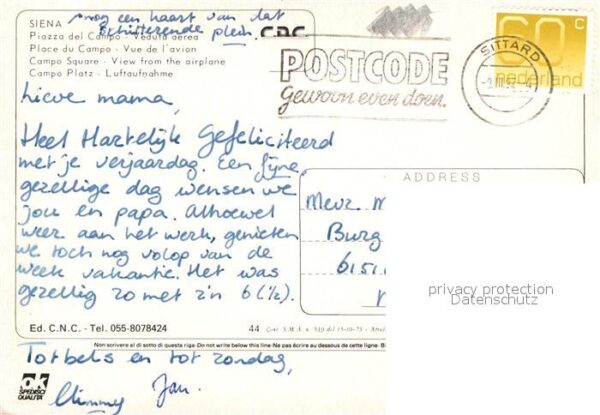 nog een kaart van dat
schitterende plein.
SIENA
Piazza del Campo - Veduta aerea
Place du Campo - Vue de l'avion
Campo Square - View from the airplane
Campo Platz - Luftaufnahme
CDC
POSTCODE
gewoon even doen.
SITTARD
60 c
nederland
Lieve mama,
Heel Hartelijk Gefeliciteerd
met je verjaardag. Een fijne,
gezellige dag wensen we
jou en papa. Alhoewel
weer aan het werk, genieten
we toch nog volop van de
week vakantie. Het was
gezellig zo met z'n 6 (½).
ADDRESS
Mevr. M
Burg
6151
privacy protection
Datenschutz
Ed. C.N.C. - Tel. 055-8078424
44
Non scrivere al di sotto di questa riga-Do not write below this line-Ne pas écrire au dessous de cette ligne
Tot bels en tot zondag,
Jan.
OK
SPEDISCI
QUALITÀ